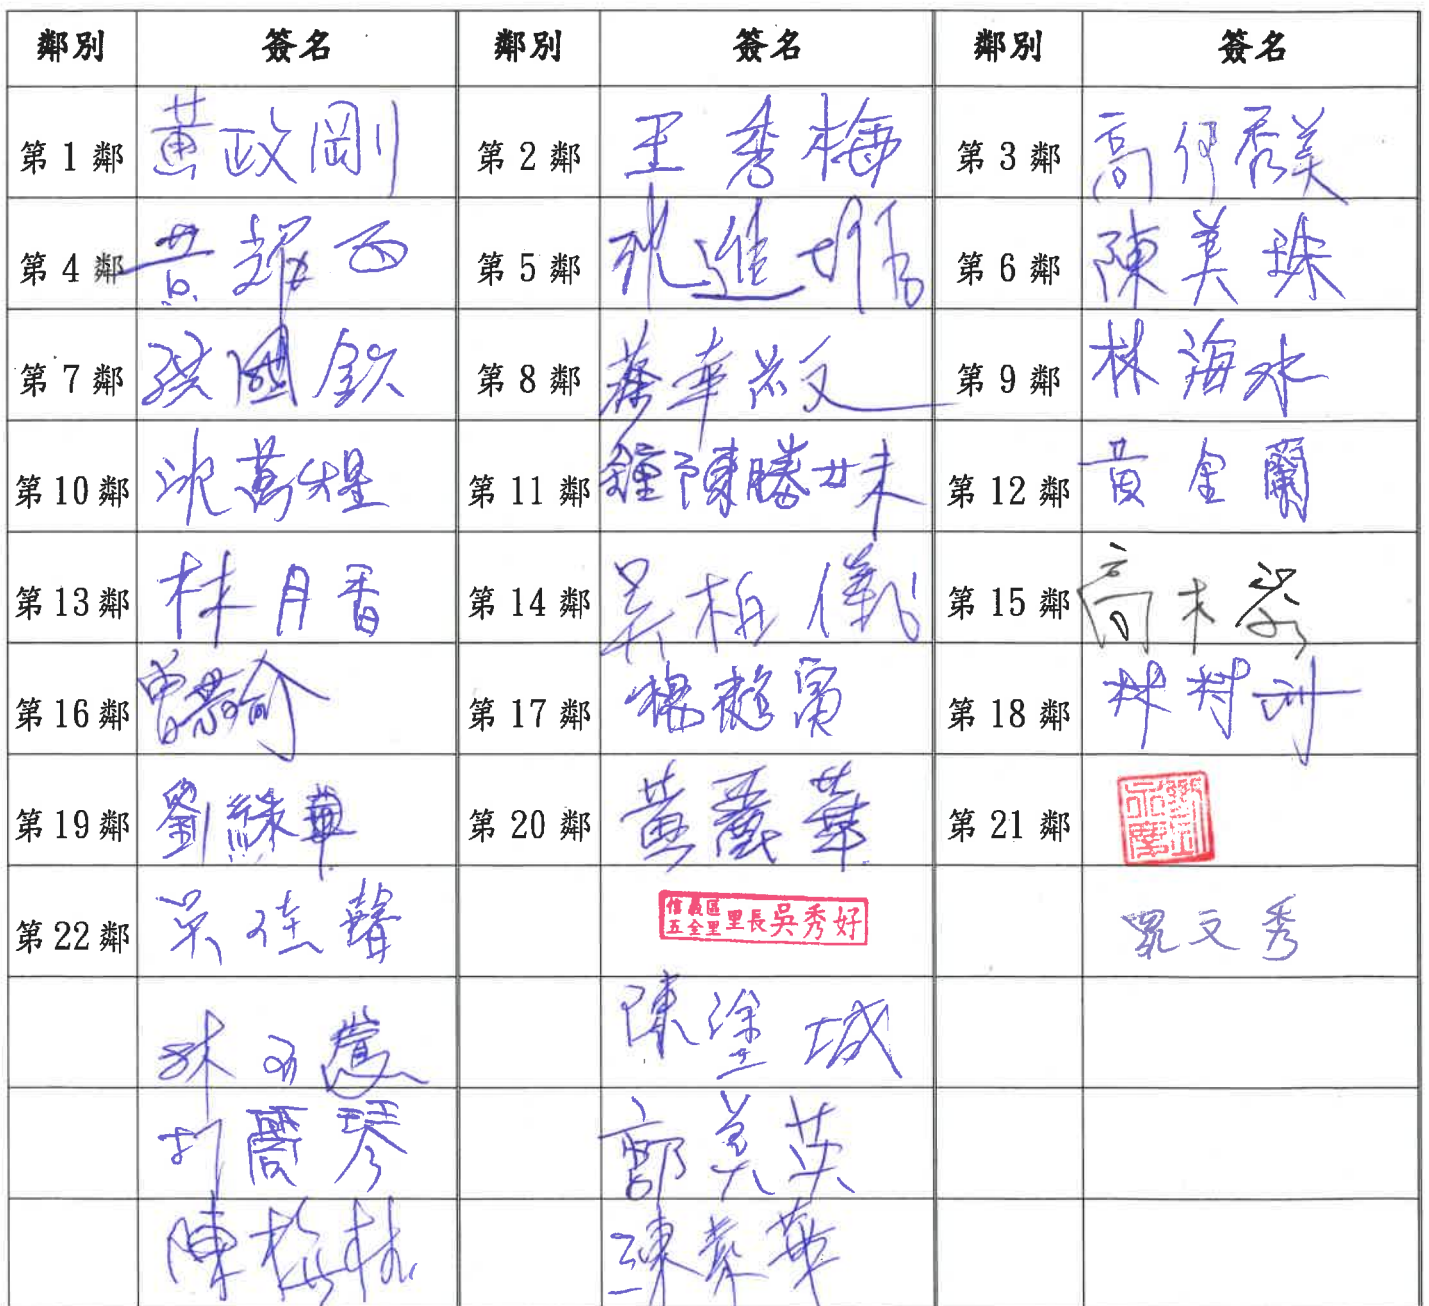 鄰別 簽名 鄰別 簽名 鄰別 簽名
第 1 鄰 黃政剛 第 2 鄰 王秀梅 第 3 鄰 高何秀美
第 4 鄰 黃耀西 第 5 鄰 進 第 6 鄰 陳美珠
第 7 鄰 國欽 第 8 鄰 蔡幸 第 9 鄰 林海水
第 10 鄰 沈萬煌 第 11 鄰 鍾陳勝妹 第 12 鄰 黃金蘭
第 13 鄰 林月香 第 14 鄰 吳柏儀 第 15 鄰 高木
第 16 鄰 曾 第 17 鄰 楊 第 18 鄰 林村
第 19 鄰 劉綵華 第 20 鄰 黃華 第 21 鄰
第 22 鄰 吳佳馨 信義區五全里里長吳秀好 羅文秀
林 陳塗城
麗琴 郭美英
陳 陳華